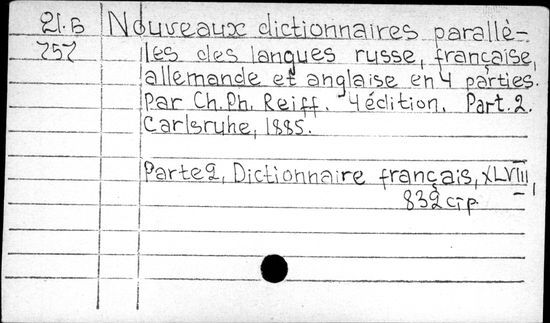 21.Б Nouveaux dictionnaires parallè-
757 les des langues russe, française,
allemande et anglaise en 4 parties.
Par Ch. Ph. Reiff. 4 édition. Part. 2.
Carlsruhe, 1885.
Parte 2, Dictionnaire français, XLVIII,
832 стр.